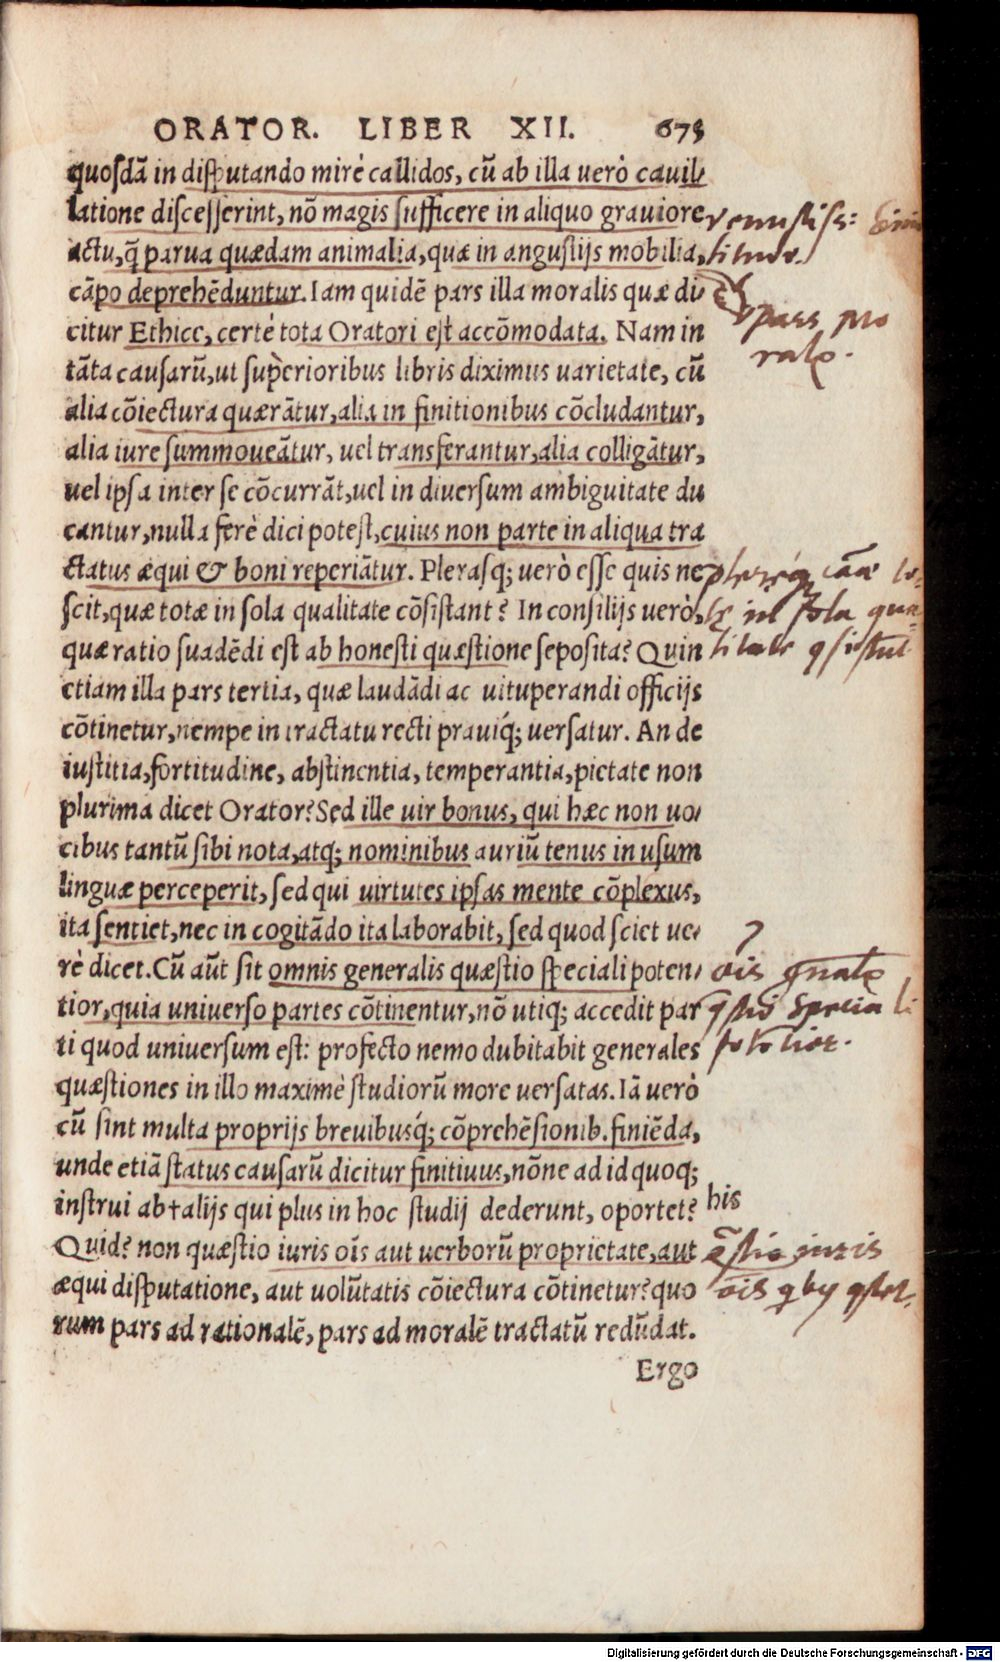 ORATOR. LIBER XII. 673
quosdā in disputando mirè callidos, cū ab illa uerò cauil-
latione discesserint, nō magis sufficere in aliquo grauiore
actu, q̃ parua quædam animalia, quæ in angustijs mobilia,
cāpo deprehēduntur. Iam quidē pars illa moralis quæ di-
citur Ethice, certè tota Oratori est accōmodata. Nam in
tāta causarū, ut superioribus libris diximus uarietate, cū
alia cōiectura quærātur, alia in finitionibus cōcludantur,
alia iure summoueātur, uel transferantur, alia colligātur,
uel ipsa inter se cōcurrāt, uel in diuersum ambiguitate du
cantur, nulla ferè dici potest, cuius non parte in aliqua tra
ctatus æqui & boni reperiātur. Plerasq; uerò esse quis ne
scit, quæ totæ in sola qualitate cōsistant? In consilijs uerò,
quæ ratio suadēdi est ab honesti quæstione seposita? Quin
etiam illa pars tertia, quæ laudādi ac uituperandi officijs
cōtinetur, nempe in tractatu recti prauiq́; uersatur. An de
iustitia, fortitudine, abstinentia, temperantia, pietate non
plurima dicet Orator? Sed ille uir bonus, qui hæc non uo-
cibus tantū sibi nota, atq; nominibus auriū tenus in usum
linguæ perceperit, sed qui uirtutes ipsas mente cōplexus,
ita sentiet, nec in cogitādo ita laborabit, sed quod sciet ue-
rè dicet. Cū aūt sit omnis generalis quæstio speciali poten-
tior, quia uniuerso partes cōtinentur, nō utiq; accedit par
ti quod uniuersum est: profecto nemo dubitabit generales
quæstiones in illo maximè studiorū more uersatas. Iā uerò
cū sint multa proprijs breuibusq́; cōprehēsionib. finiēda,
unde etiā status causarū dicitur finitiuus, nōne ad id quoq;
instrui ab†alijs qui plus in hoc studij dederunt, oportet?
Quid? non quæstio iuris oīs aut uerborū proprietate, aut
æqui disputatione, aut volūtatis cōiectura cōtinetur? quo
rum pars ad rationalē, pars ad moralē tractatū redūdat.
Ergo
pars mo
ralis.
in sola qua-
?
ois
speciali
his
iuris
ois